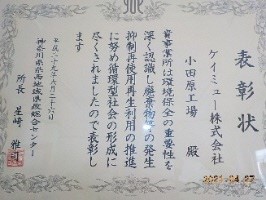 表彰状
ケイミュー株式会社
小田原工場 殿
貴事業所は環境保全の重要性を
深く認識し廃棄物等の発生
抑制再使用再生利用の推進
に努め循環型社会の形成に
尽くされましたので表彰し
ます
平成二十九年六月二十六日
神奈川県県西地域県政総合センター
所長 星崎 雅司
2021.04.27